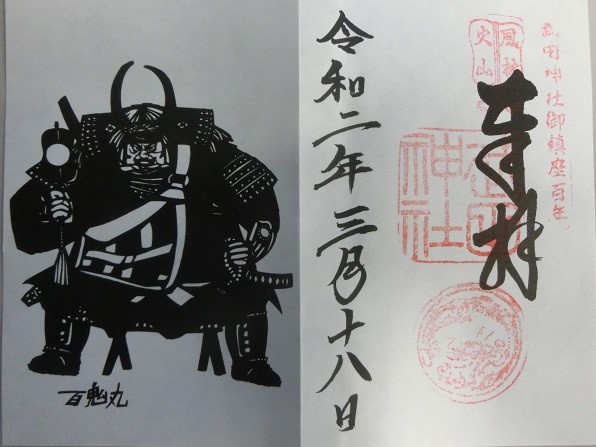 武田神社御鎮座百年
風林
火山
奉拝
武田
神社
令和二年三月十八日
百鬼丸